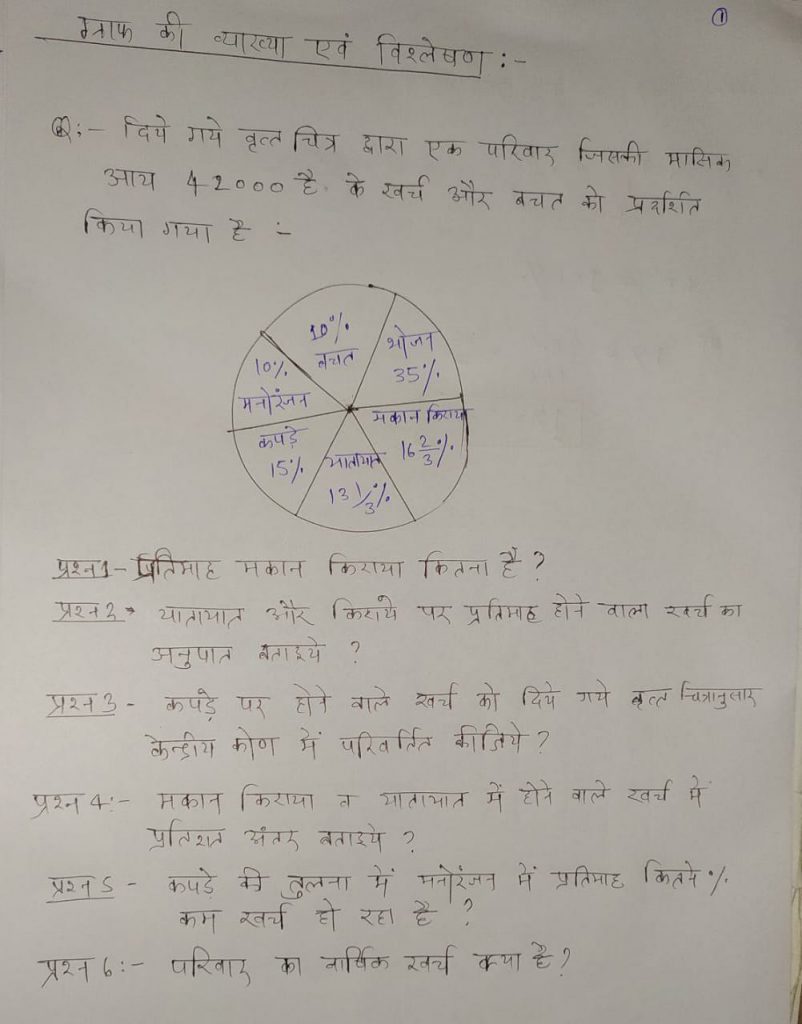 ①
ग्राफ की व्याख्या एवं विश्लेषण :-
Q:- दिये गये वृत्त चित्र द्वारा एक परिवार जिसकी मासिक
आय 42000 है. के खर्च और बचत को प्रदर्शित
किया गया है :-
10%
बचत
भोजन
35%
10%
मनोरंजन
मकान किराया
16 2/3 %
कपड़े
15%
यातायात
13 1/3 %
प्रश्न 1 - प्रतिमाह मकान किराया कितना है ?
प्रश्न 2 - यातायात और किराये पर प्रतिमाह होने वाला खर्च का
अनुपात बताइये ?
प्रश्न 3 - कपड़े पर होने वाले खर्च को दिये गये वृत्त चित्रानुसार
केन्द्रीय कोण में परिवर्तित कीजिये ?
प्रश्न 4:- मकान किराया व यातायात में होने वाले खर्च में
प्रतिशत अंतर बताइये ?
प्रश्न 5 - कपड़े की तुलना में मनोरंजन में प्रतिमाह कितने %
कम खर्च हो रहा है ?
प्रश्न 6:- परिवार का वार्षिक खर्च क्या है ?